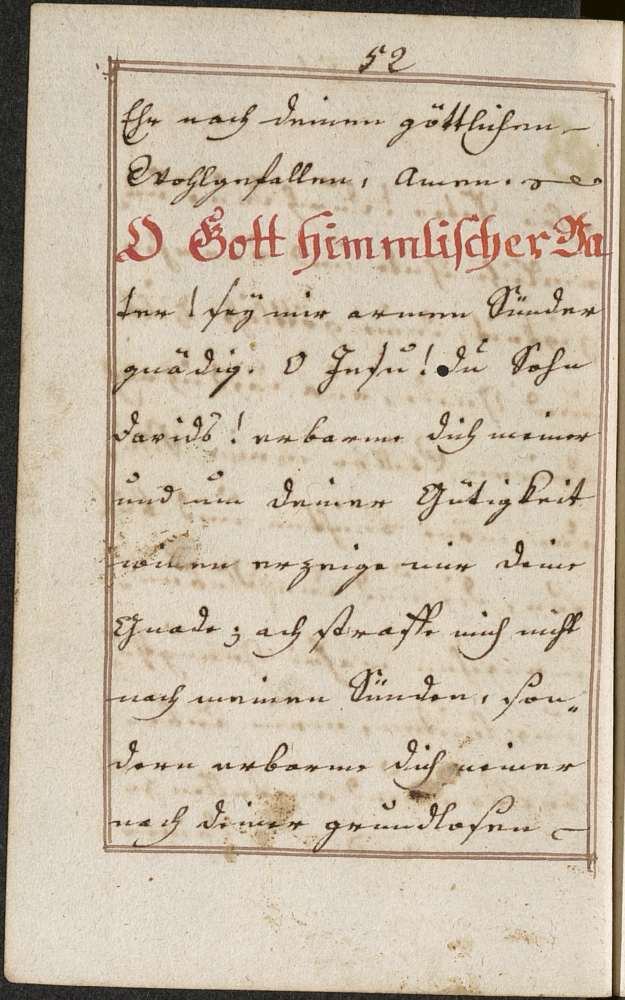 52
Ehr nach deinem göttlichen
Wohlgefallen, Amen.
O Gott himmlischer Va
ter! sey mir armen Sünder
gnädig. O Jesu! du Sohn
Davids! erbarme dich meiner
und um deiner Gütigkeit
willen erzeige mir deine
Gnade; ach straffe mich nicht
nach meinen Sünden, son„
dern erbarme dich meiner
nach deiner grundlosen